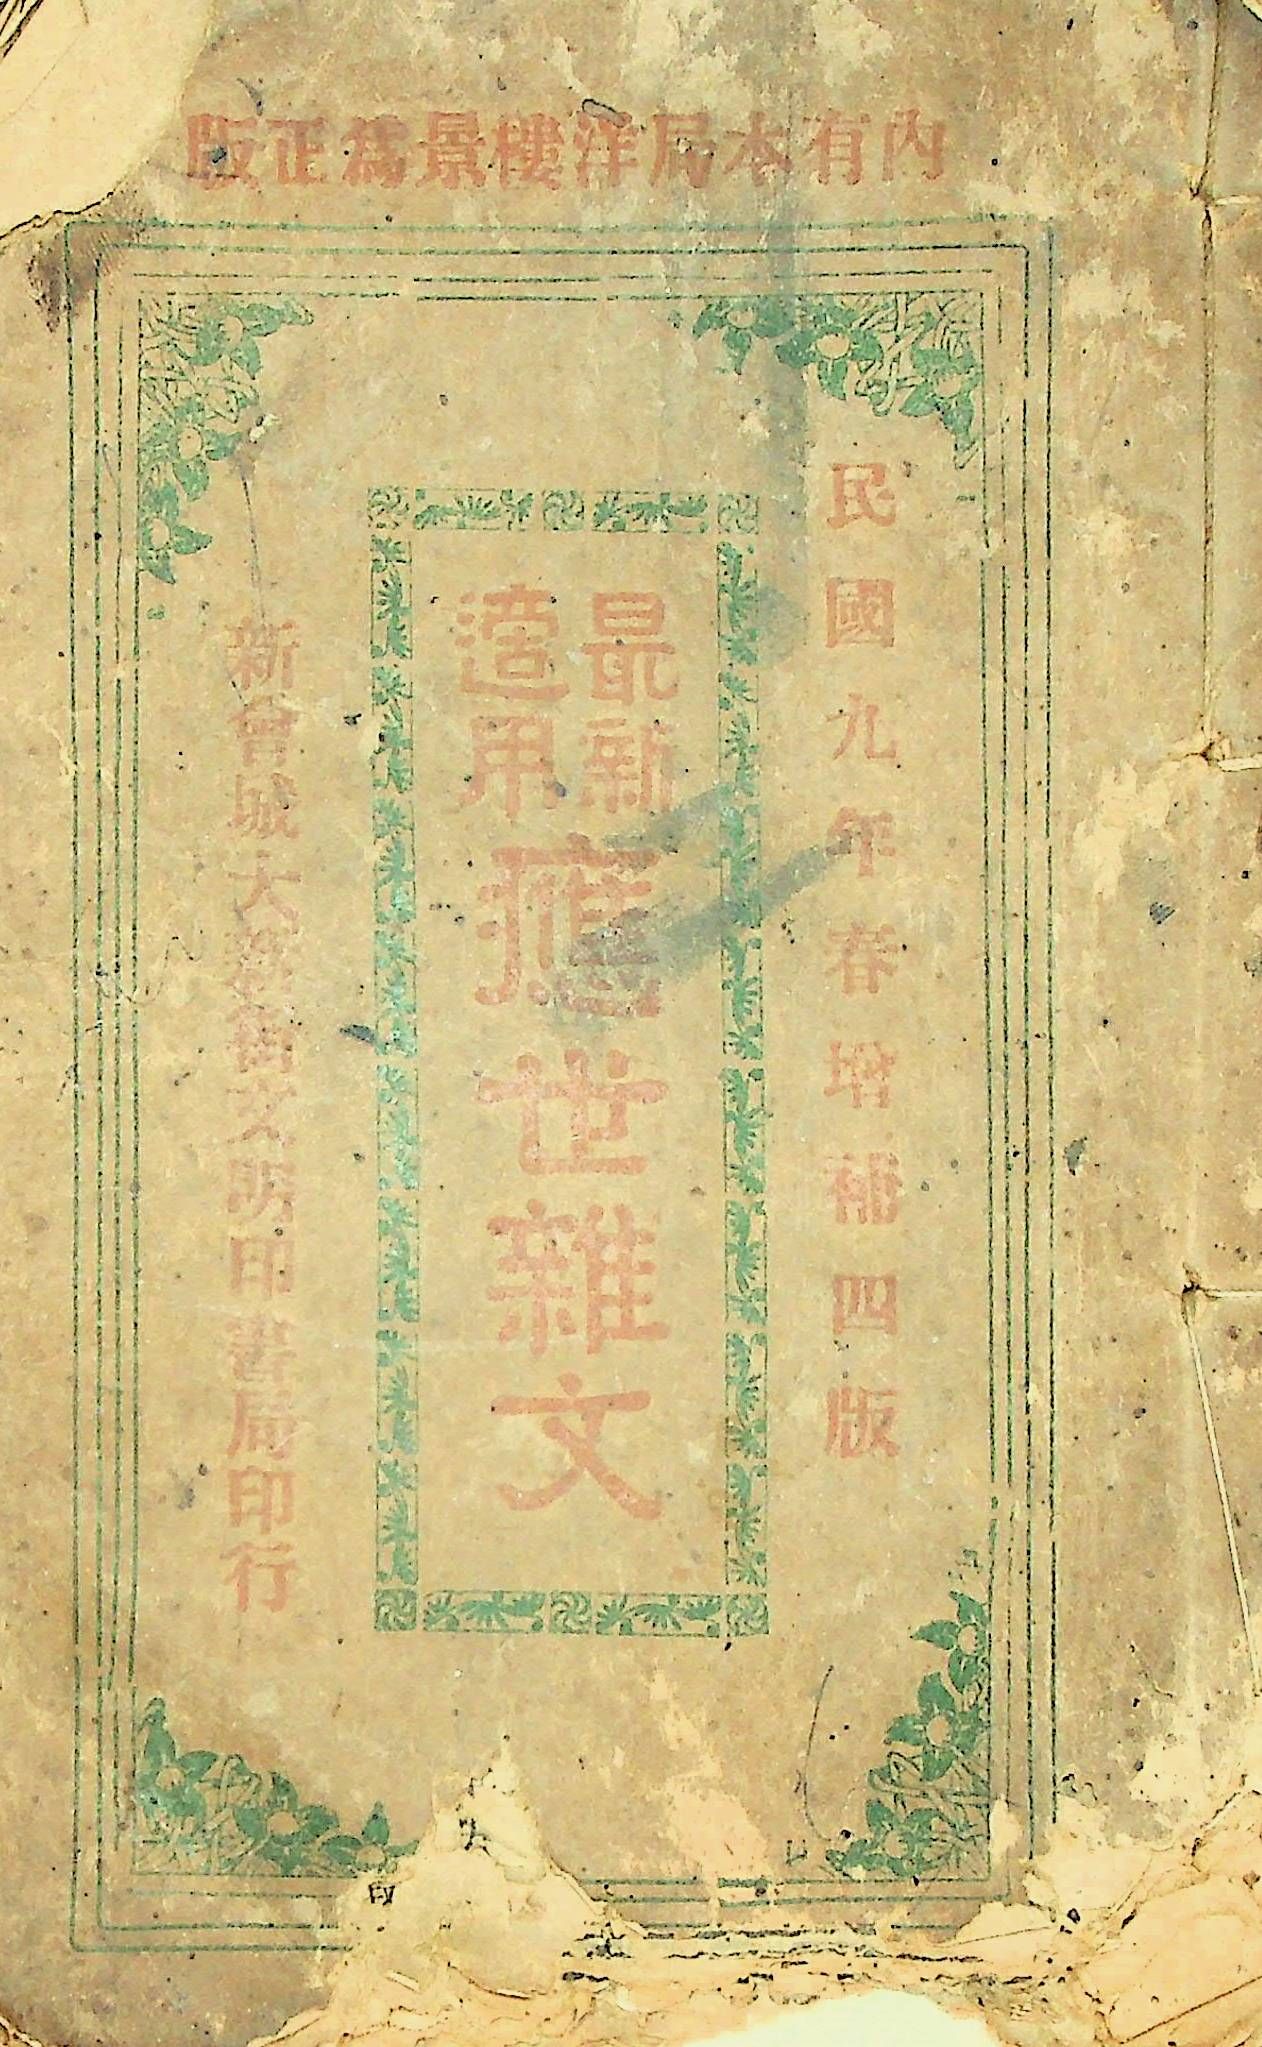 內有本局洋樓景爲正版
民國九年春增補四版
最新
適用
應世雜文
新會城大新街文明印書局印行